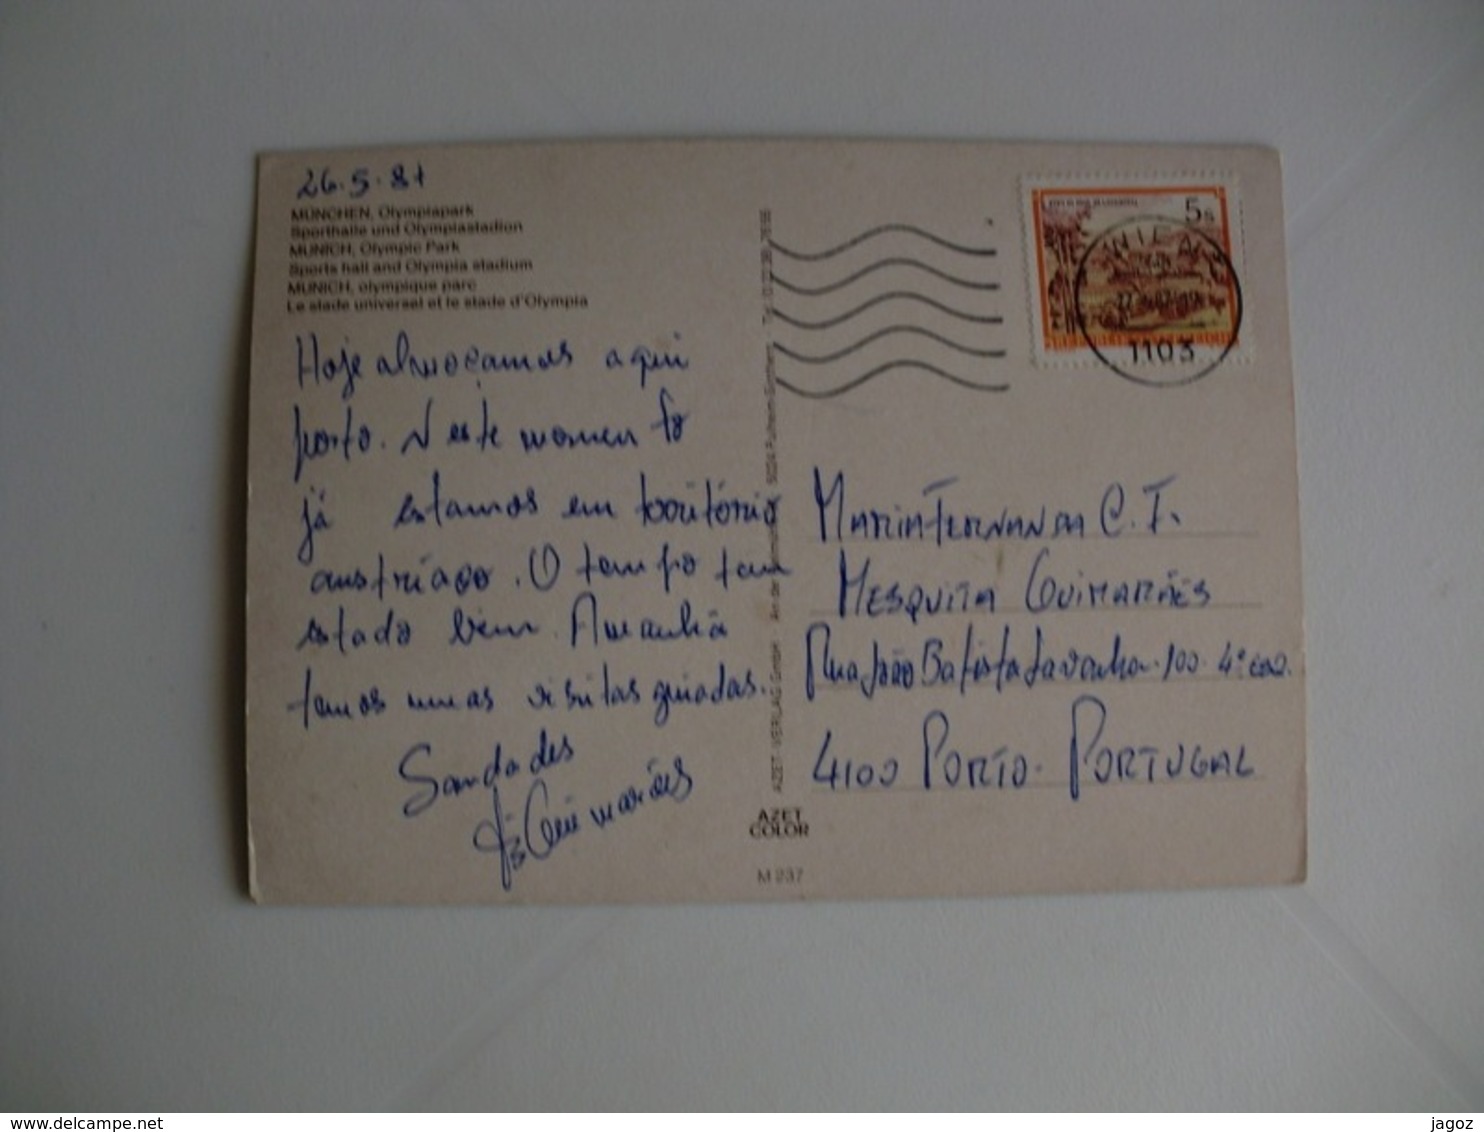 26.5.81
MÜNCHEN, Olympiapark
Sporthalle und Olympiastadion
MUNICH, Olympic Park
Sports hall and Olympia stadium
MUNICH, olympique parc
Le stade universel et le stade d'Olympia
Hoje almoçamos aqui
perto. Neste momento
já estamos em território
austríaco. O tempo tem
estado bem. Amanhã
temos umas visitas guiadas.
Saudades
Guimarães
AZET-VERLAG GmbH
AZET
COLOR
M 937
5s
1103
MARIA FERNANDA C. T.
MESQUITA GUIMARÃES
Rua João Batista Lavanha. 100. 4º
4100 PORTO. PORTUGAL
www.delcampe.net
jagoz